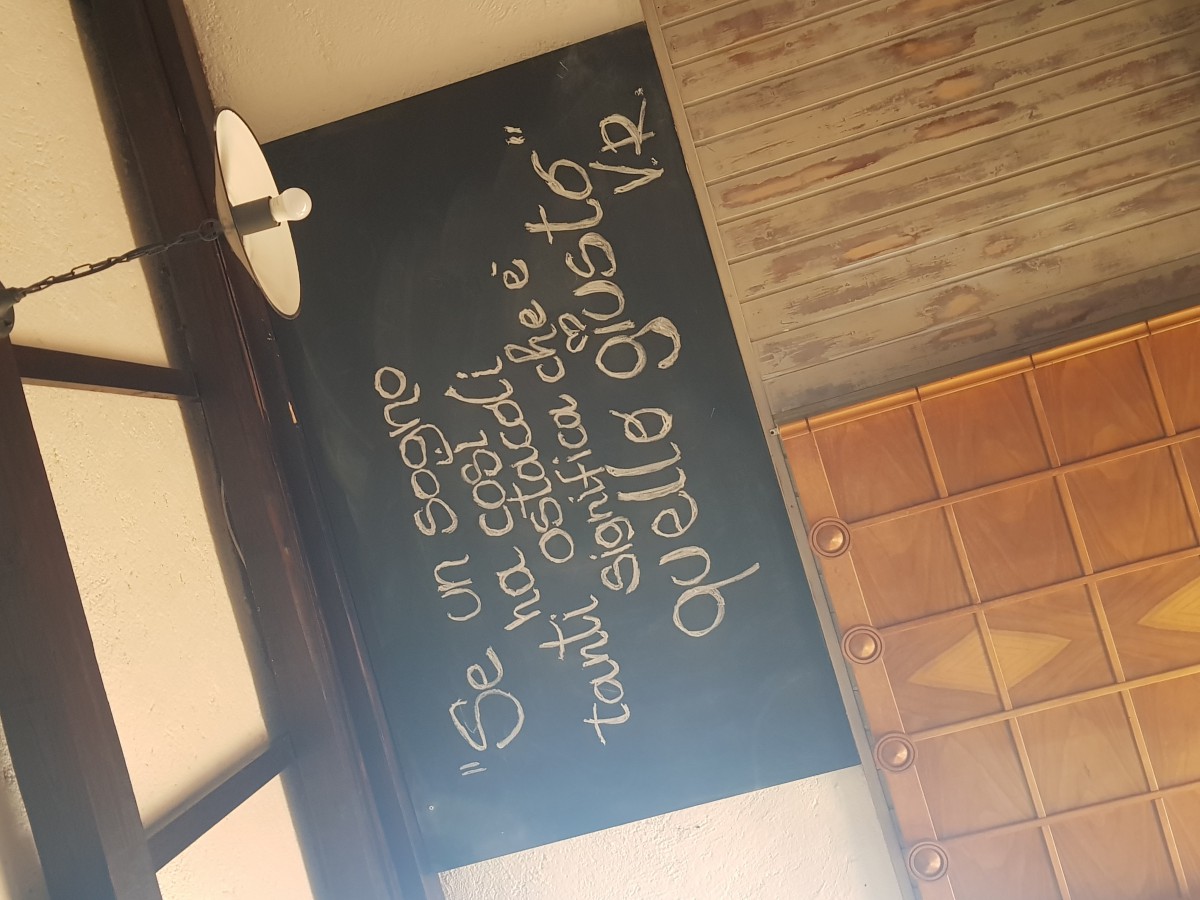 "Se un sogno
ha cosi
tanti ostacoli
significa che é
quello giusto"
V.R.